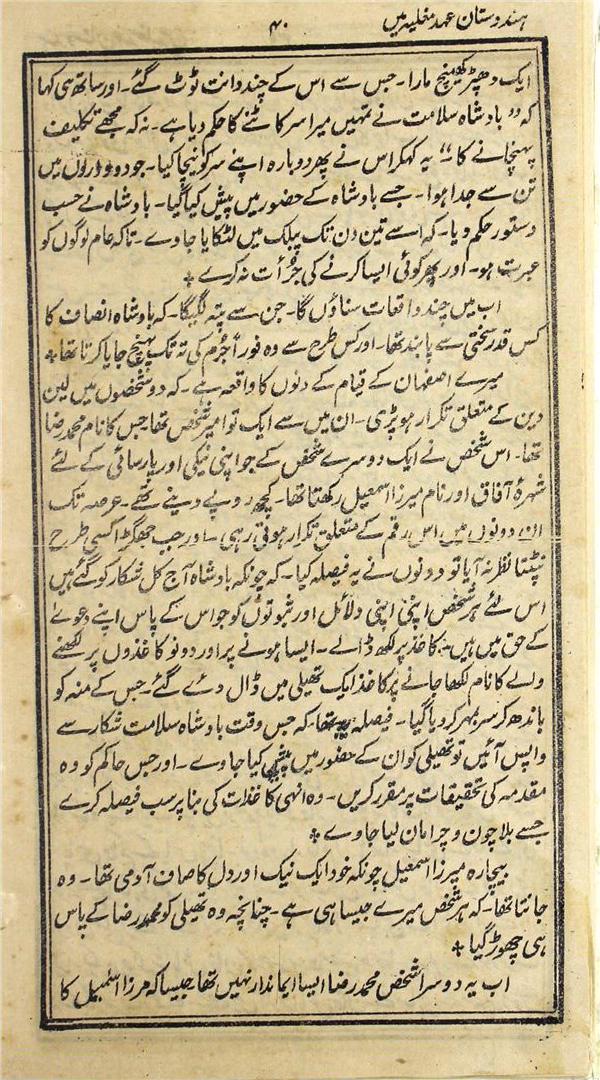 ہندوستان عہد مغلیہ میں
۴۰
ایک دھپڑ کھینچ مارا۔ جس سے اس کے چند دانت ٹوٹ گئے۔ اور ساتھ ہی کہا
کہ ”بادشاہ سلامت نے تمہیں میرا سر کاٹنے کا حکم دیا ہے۔ نہ کہ مجھے تکلیف
پہنچانے کا“ یہ کہکر اس نے پھر دوبارہ اپنے سر کو نیچا کیا۔ جو دو واروں میں
تن سے جدا ہوا۔ جسے بادشاہ کے حضور میں پیش کیا گیا۔ بادشاہ نے حسب
دستور حکم دیا۔ کہ اسے تین دن تک پبلک میں لٹکایا جاوے۔ تاکہ عام لوگوں کو
عبرت ہو۔ اور پھر کوئی ایسا کرنے کی جرُأت نہ کرے *
اب میں چند واقعات سناؤں گا۔ جن سے پتہ لگیگا۔ کہ بادشاہ انصاف کا
کس قدر سختی سے پابند تھا۔ اور کس طرح سے وہ فوراً جُرم کی تہ تک پہنچ جایا کرتا تھا *
میرے اصفہان کے قیام کے دنوں کا واقعہ ہے۔ کہ دو شخصوں میں لین
دین کے متعلق تکرار ہو پڑی۔ ان میں سے ایک تو امیر شخص تھا۔ جس کا نام محمد رضا
تھا۔ اس شخص نے ایک دوسرے شخص کے جو اپنی نیکی اور پارسائی کے لئے
شہرۂ آفاق اور نام میرزا اسمٰعیل رکھتا تھا۔ کچھ روپے دینے تھے۔ عرصہ تک
ان دونوں میں اس رقم کے متعلق تکرار ہوتی رہی۔ اور جب جھگڑا کسی طرح
نپٹتا نظر نہ آیا تو دونوں نے یہ فیصلہ کیا۔ کہ چونکہ بادشاہ آج کل شکار کو گئے ہیں
اس لئے ہر شخص اپنی اپنی دلائل اور ثبوتوں کو جو اس کے پاس اپنے دعوے
کے حق میں ہیں۔ کاغذ پر لکھ ڈالے۔ ایسا ہونے پر اور دونو کاغذوں پر لکھنے
والے کا نام لکھا جانے پر کاغذ ایک تھیلی میں ڈال دئے گئے۔ جس کے منہ کو
باندھ کر سر بمہر کر دیا گیا۔ فیصلہ یہ تھا۔ کہ جس وقت بادشاہ سلامت شکار سے
واپس آئیں تو تھیلی کو ان کے حضور میں پیش کیا جاوے۔ اور جس حاکم کو وہ
مقدمہ کی تحقیقات پر مقرر کریں۔ وہ انہی کاغذات کی بنا پر سب فیصلہ کرے
جسے بلا چون و چرا مان لیا جاوے *
بیچارہ میرزا اسمٰعیل چونکہ خود ایک نیک اور دل کا صاف آدمی تھا۔ وہ
جانتا تھا۔ کہ ہر شخص میرے جیسا ہی ہے۔ چنانچہ وہ تھیلی کو محمد رضا کے پاس
ہی چھوڑ گیا *
اب یہ دوسرا شخص محمد رضا ایسا ایماندار نہیں تھا۔ جیسا کہ مرزا اسمٰعیل کا